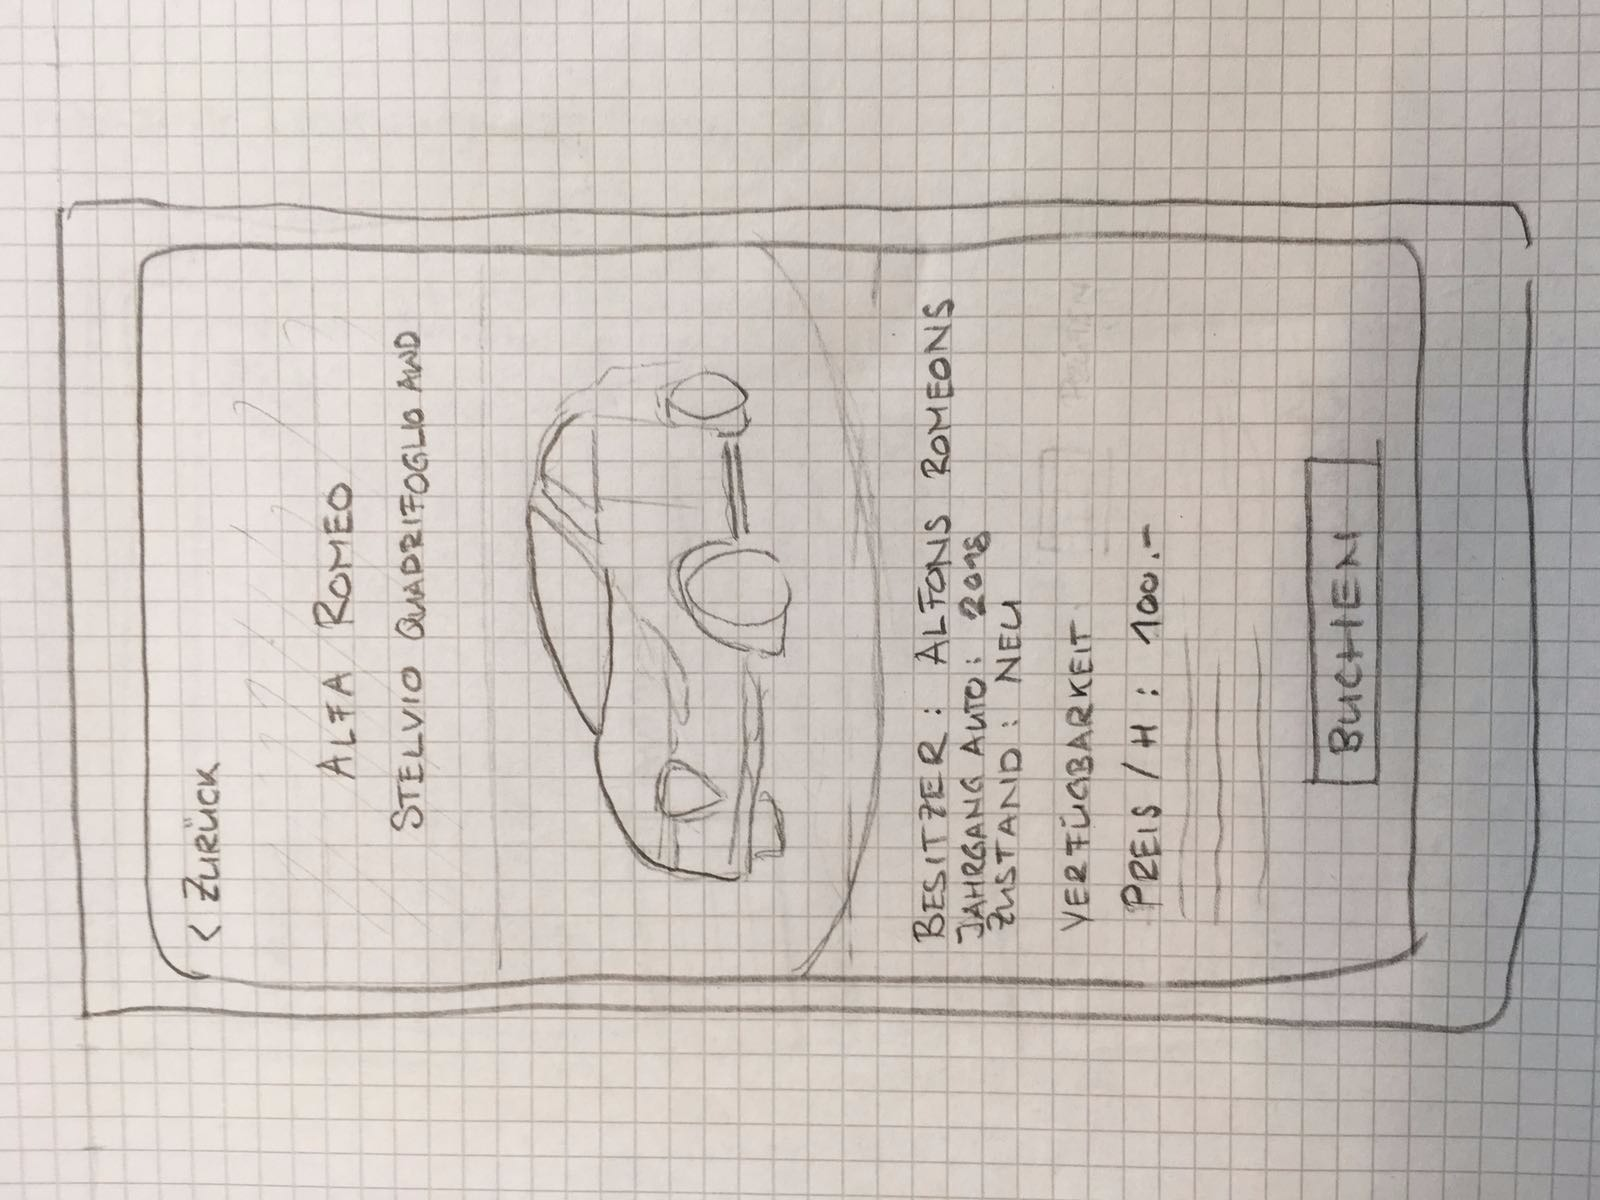 < ZURÜCK
ALFA ROMEO
STELVIO QUADRIFOGLIO AWD
BESITZER: ALFONS ROMEONS
JAHRGANG AUTO: 2018
ZUSTAND: NEU
VERFÜGBARKEIT
PREIS/H: 100.-
BUCHEN